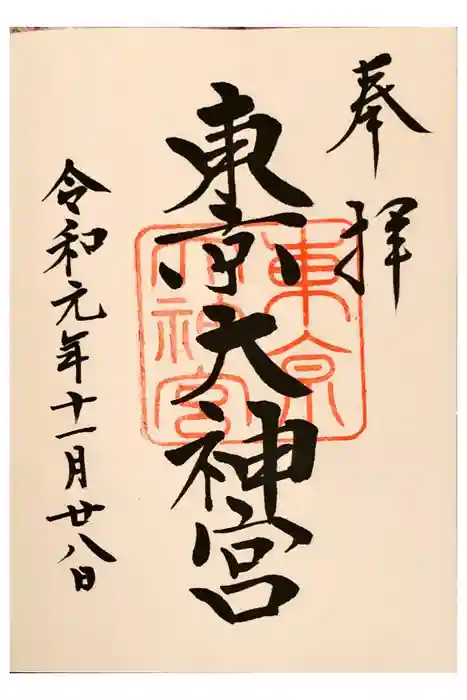 奉拝
東京大神宮
東京大神宮
令和元年十一月廿八日